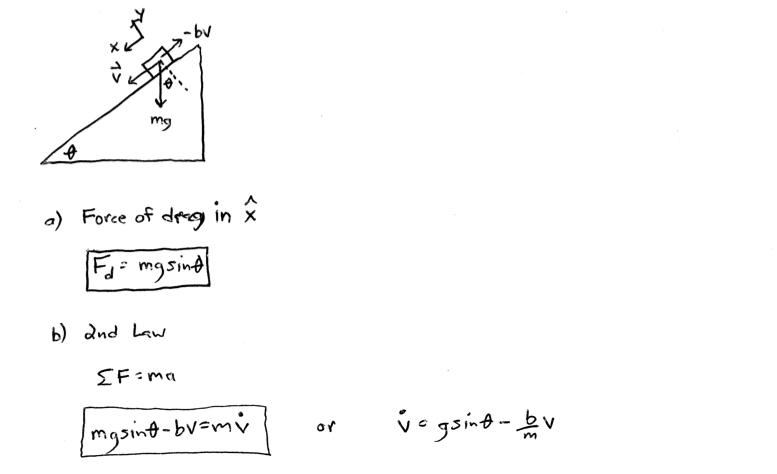 y
x
-bv
v⃗
θ
mg
θ
a) Force of drag in x̂
F_d = mg sinθ
b) 2nd Law
ΣF = ma
mg sinθ - bv = m v̇ or v̇ = g sinθ - b/m v